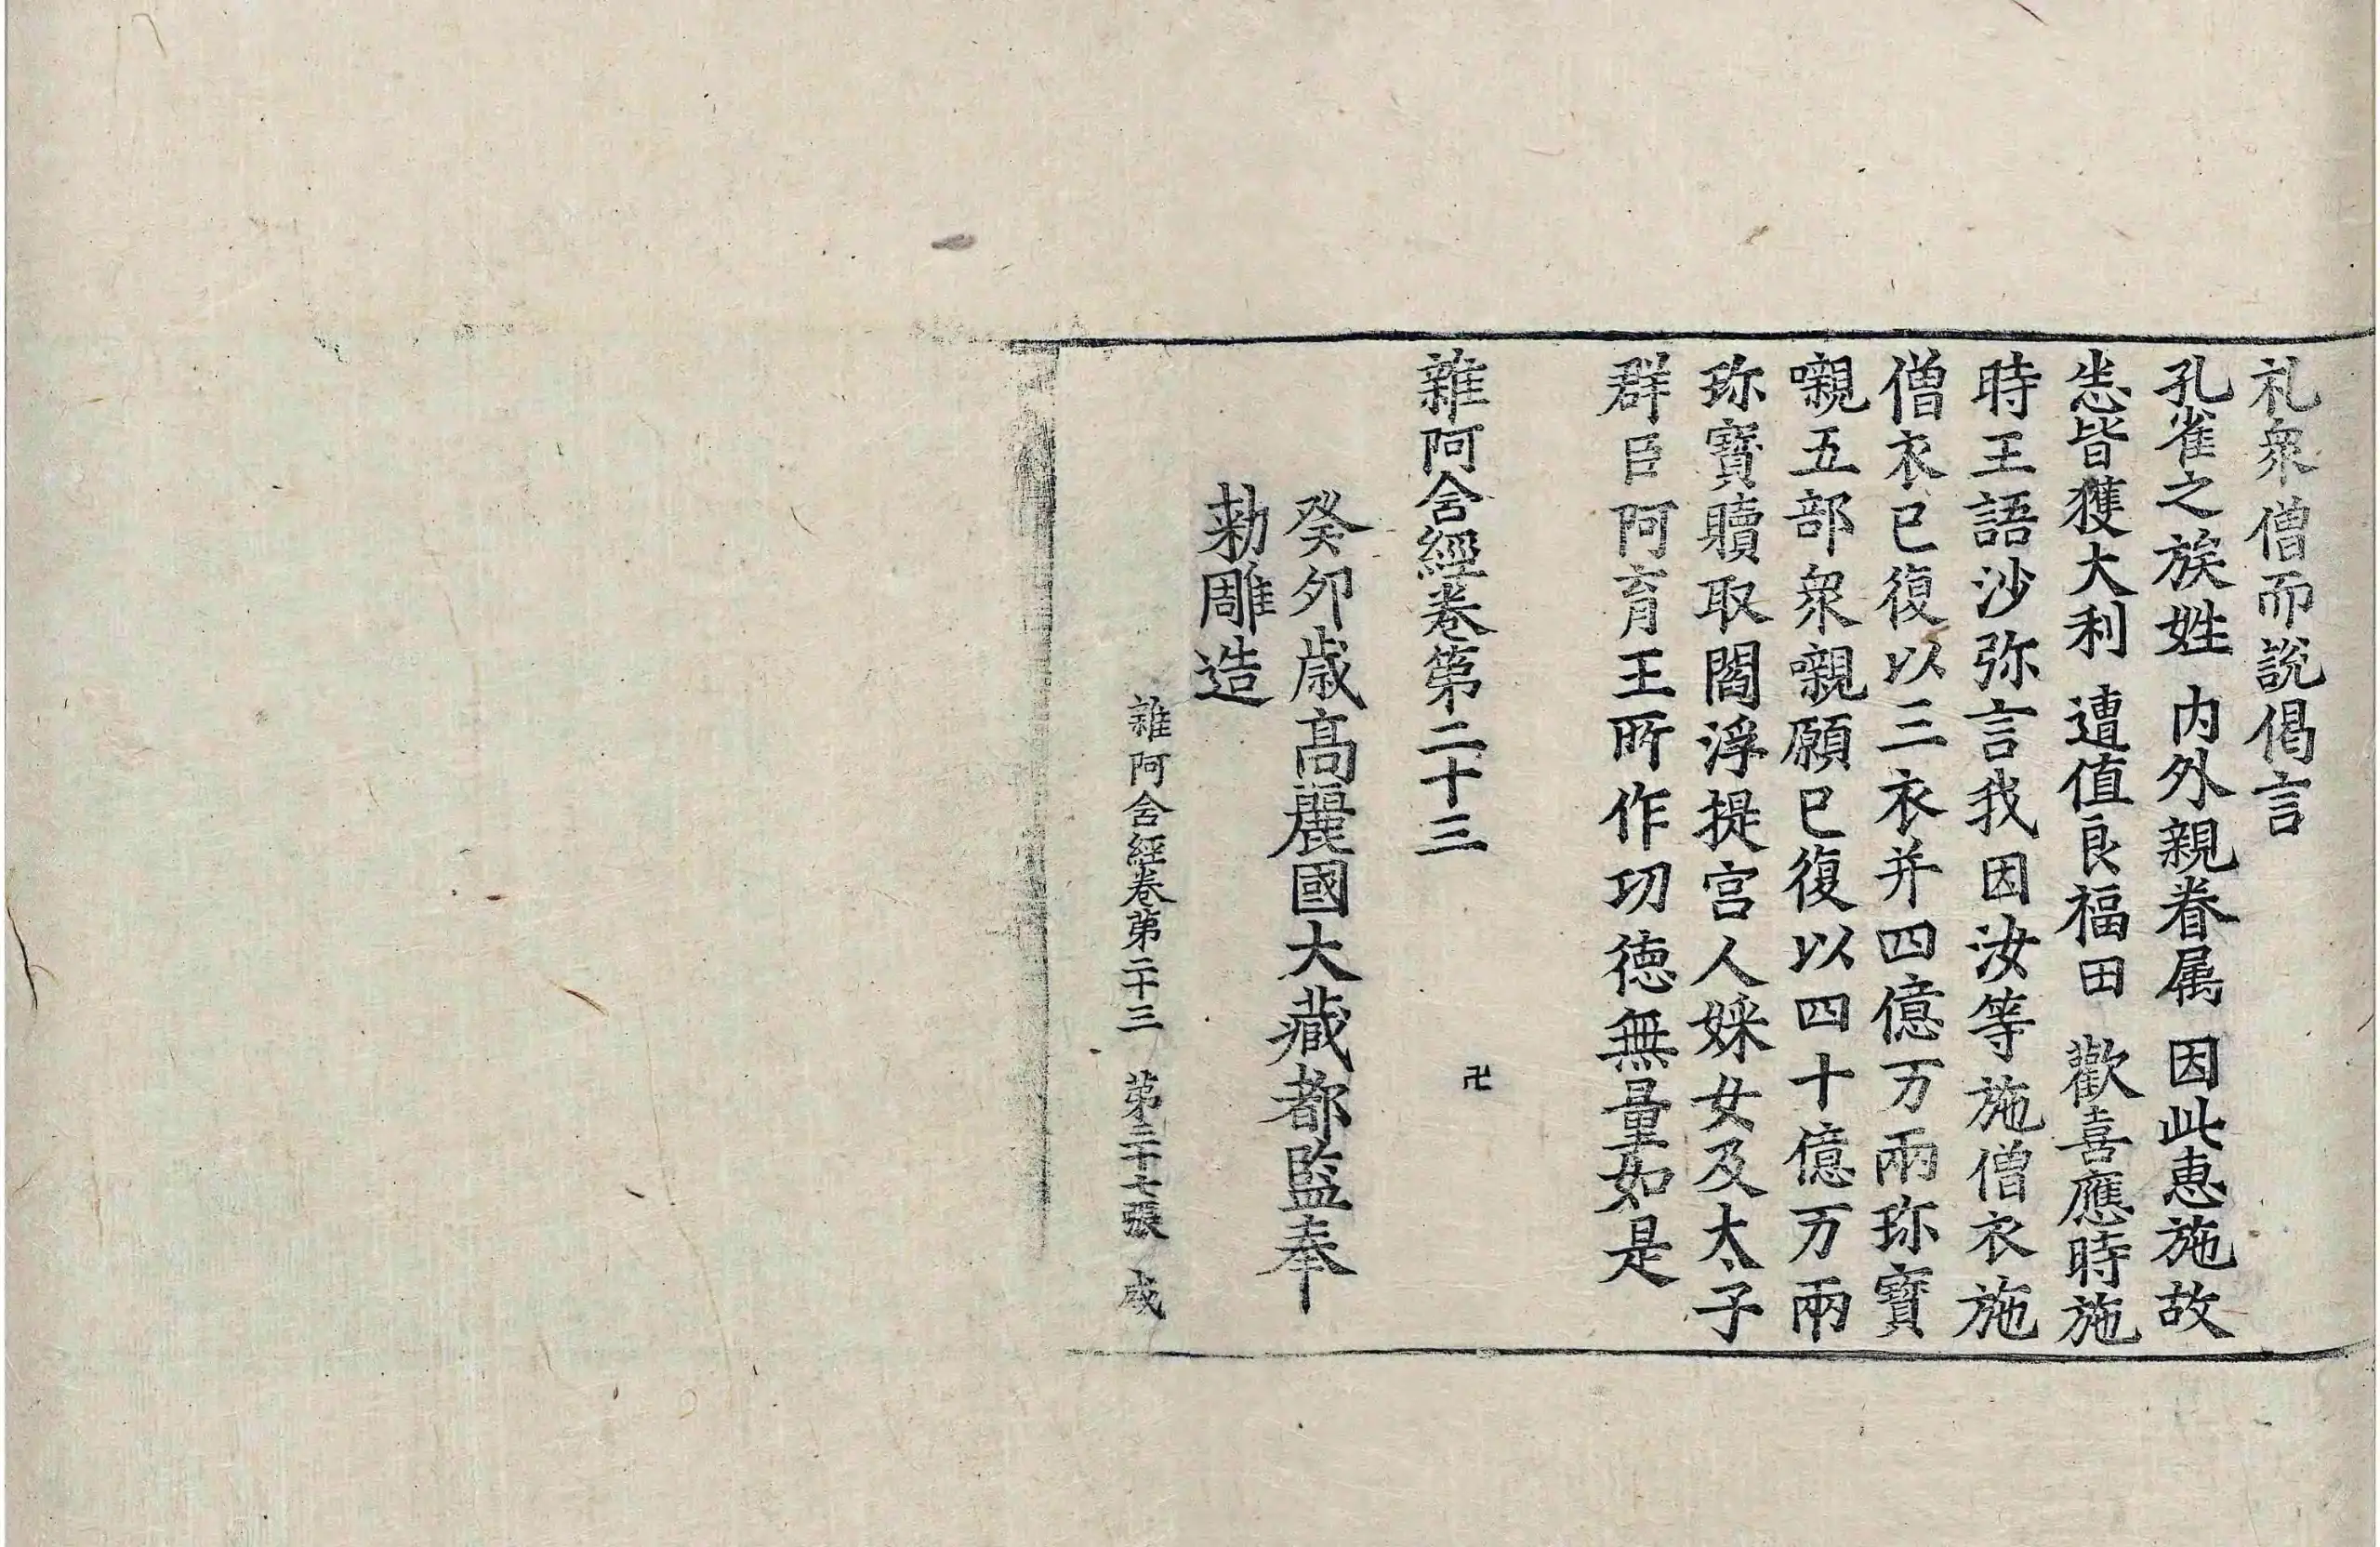 礼衆僧而說偈言
孔雀之族姓 内外親眷属 因此惠施故
悉皆獲大利 遭值良福田 歡喜應時施
時王語沙弥言我因汝等施僧衣施
僧衣已復以三衣并四億万兩珎寶
嚫五部衆嚫願已復以四十億万兩
珎寶贖取閻浮提宫人婇女及太子
群臣阿育王所作功徳無量如是
雜阿含經卷第二十三
卍
癸卯歳高麗國大藏都監奉
勅雕造
雜阿含經卷第二十三 第三十七張 成